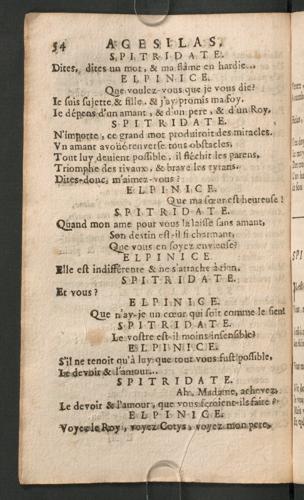 54 AGESILAS,
SPITRIDATE.
Dites, dites un mot, & ma flâme en hardie...
ELPINICE.
Que voulez-vous que je vous die?
Ie suis sujette & fille, & j'ay promis ma foy,
Ie dépens d'un amant, & d'un pere, & d'un Roy,
SPITRIDATE.
N'importe, ce grand mot produiroit des miracles.
Vn amant avoüé renverse tous obstacles,
Tout luy devient possible, il fléchit les parens,
Triomphe des rivaux, & brave les tyrans.
Dites-donc, m'aimez-vous?
ELPINICE.
Que ma sœur est heureuse!
SPITRIDATE.
Quand mon ame pour vous la laisse sans amant,
Son destin est-il si charmant,
Que vous en soyez envieuse?
ELPINICE.
Elle est indifférente & ne s'attache à rien.
SPITRIDATE.
Et vous?
ELPINICE.
Que n'ay-je un cœur qui soit comme le sien
SPITRIDATE.
Le vostre est-il moins insensible?
ELPINICE.
S'il ne tenoit qu'à luy que tout vous fust possible,
Le devoir & l'amour...
SPITRIDATE.
Ah, Madame, achevez,
Le devoir & l'amour, que vous feroient-ils faire?
ELPINICE.
Voyez le Roy, voyez Cotys, voyez mon pere,